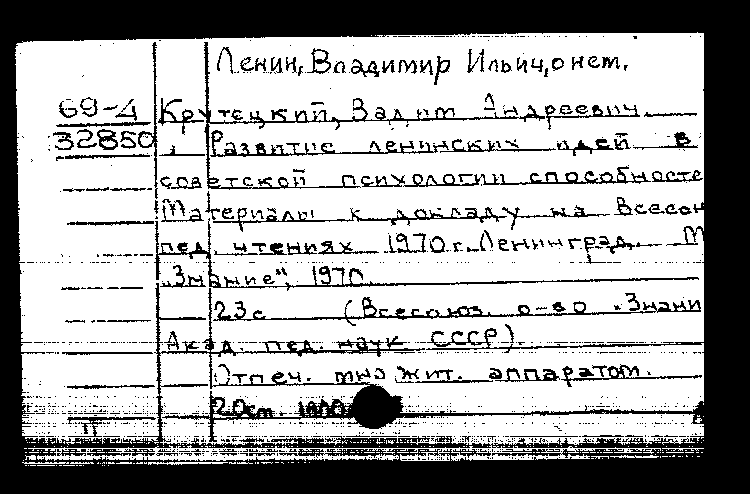 Ленин, Владимир Ильич, о нем.
69-4 Крутецкий, Вадим Андреевич.
32850 Развитие ленинских идей в
советской психологии способносте
Материалы к докладу на Всесоюз
пед. чтениях 1970 г. Ленинград. М
"Знание", 1970.
23 с (Всесоюз. о-во "Знани
Акад. пед. наук СССР).
Отпеч. множит. аппаратом.
20см.